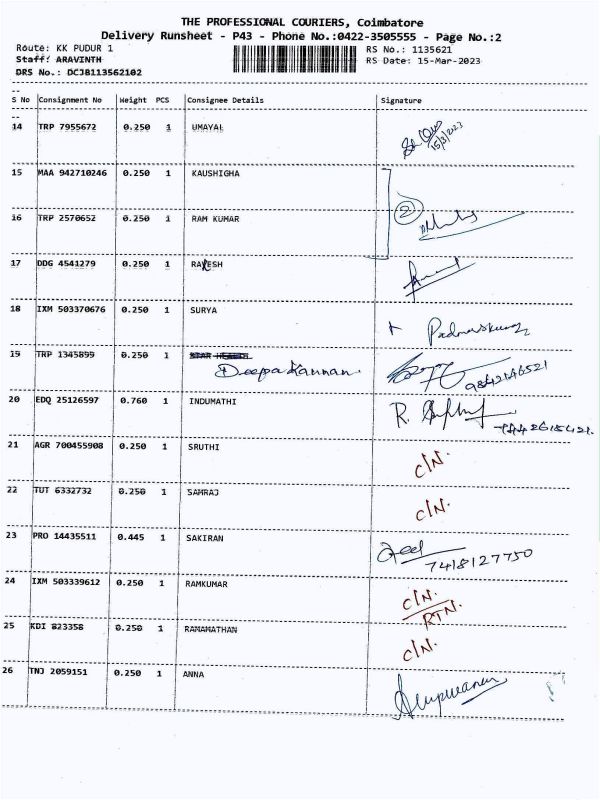 THE PROFESSIONAL COURIERS, Coimbatore
Delivery Runsheet - P43 - Phone No.:0422-3505555 - Page No.:2
Route: KK PUDUR 1 RS No.: 1135621
Staff: ARAVINTH RS Date: 15-Mar-2023
DRS No.: DCJB113562102
S No Consignment No Weight PCS Consignee Details Signature
14 TRP 7955672 0.250 1 UMAYAL
15/3/2023
15 MAA 942710246 0.250 1 KAUSHIGHA
2
16 TRP 2570652 0.250 1 RAM KUMAR
17 DDG 4541279 0.250 1 RAKESH
18 IXM 503370676 0.250 1 SURYA
19 TRP 1345899 0.250 1
Deepa Kannan. 9842146521
20 EDQ 25126597 0.760 1 INDUMATHI R.
21 AGR 700455908 0.250 1 SRUTHI C/N.
22 TUT 6332732 0.250 1 SAMRAJ C/N.
23 PRO 14435511 0.445 1 SAKIRAN
7418127750
24 IXM 503339612 0.250 1 RAMKUMAR C/N.
RTN.
25 KDI 823358 0.250 1 RAMAMATHAN C/N.
26 TNJ 2059151 0.250 1 ANNA